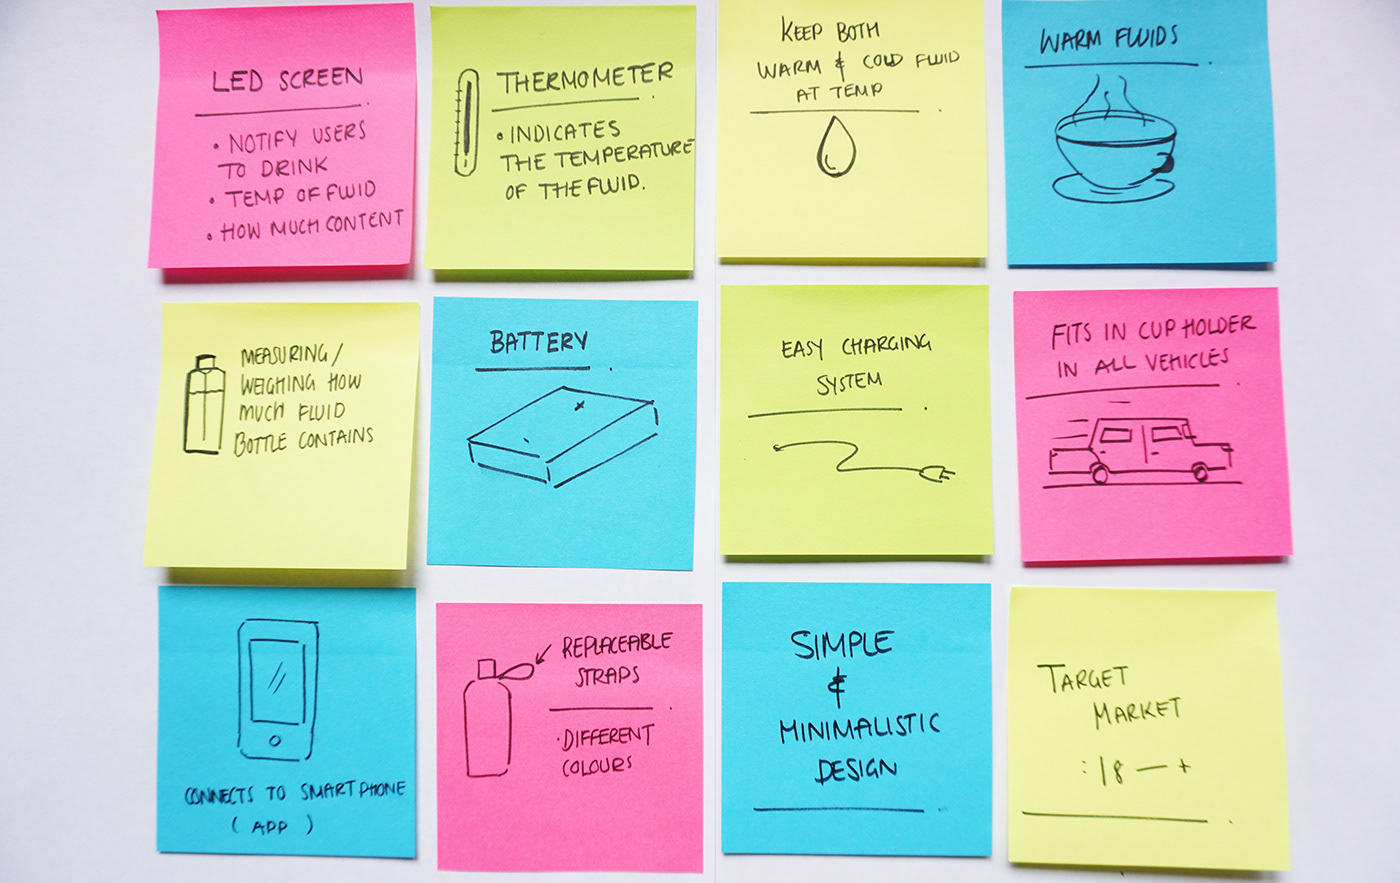 LED SCREEN
• NOTIFY USERS
TO DRINK
• TEMP OF FLUID
• HOW MUCH CONTENT
THERMOMETER
• INDICATES
THE TEMPERATURE
OF THE FLUID.
KEEP BOTH
WARM & COLD FLUID
AT TEMP
WARM FLUIDS
MEASURING/
WEIGHING HOW
MUCH FLUID
BOTTLE CONTAINS
BATTERY
EASY CHARGING
SYSTEM
FITS IN CUP HOLDER
IN ALL VEHICLES
CONNECTS TO SMARTPHONE
( APP )
REPLACEABLE
STRAPS
• DIFFERENT
COLOURS
SIMPLE
&
MINIMALISTIC
DESIGN
TARGET
MARKET
: 18 — +